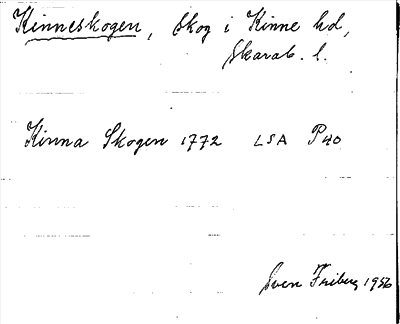 Kinneskogen, Skog i Kinne hd,
Skarab. l.
Kinna Skogen 1772 LSA P40
Sven Friberg 1956